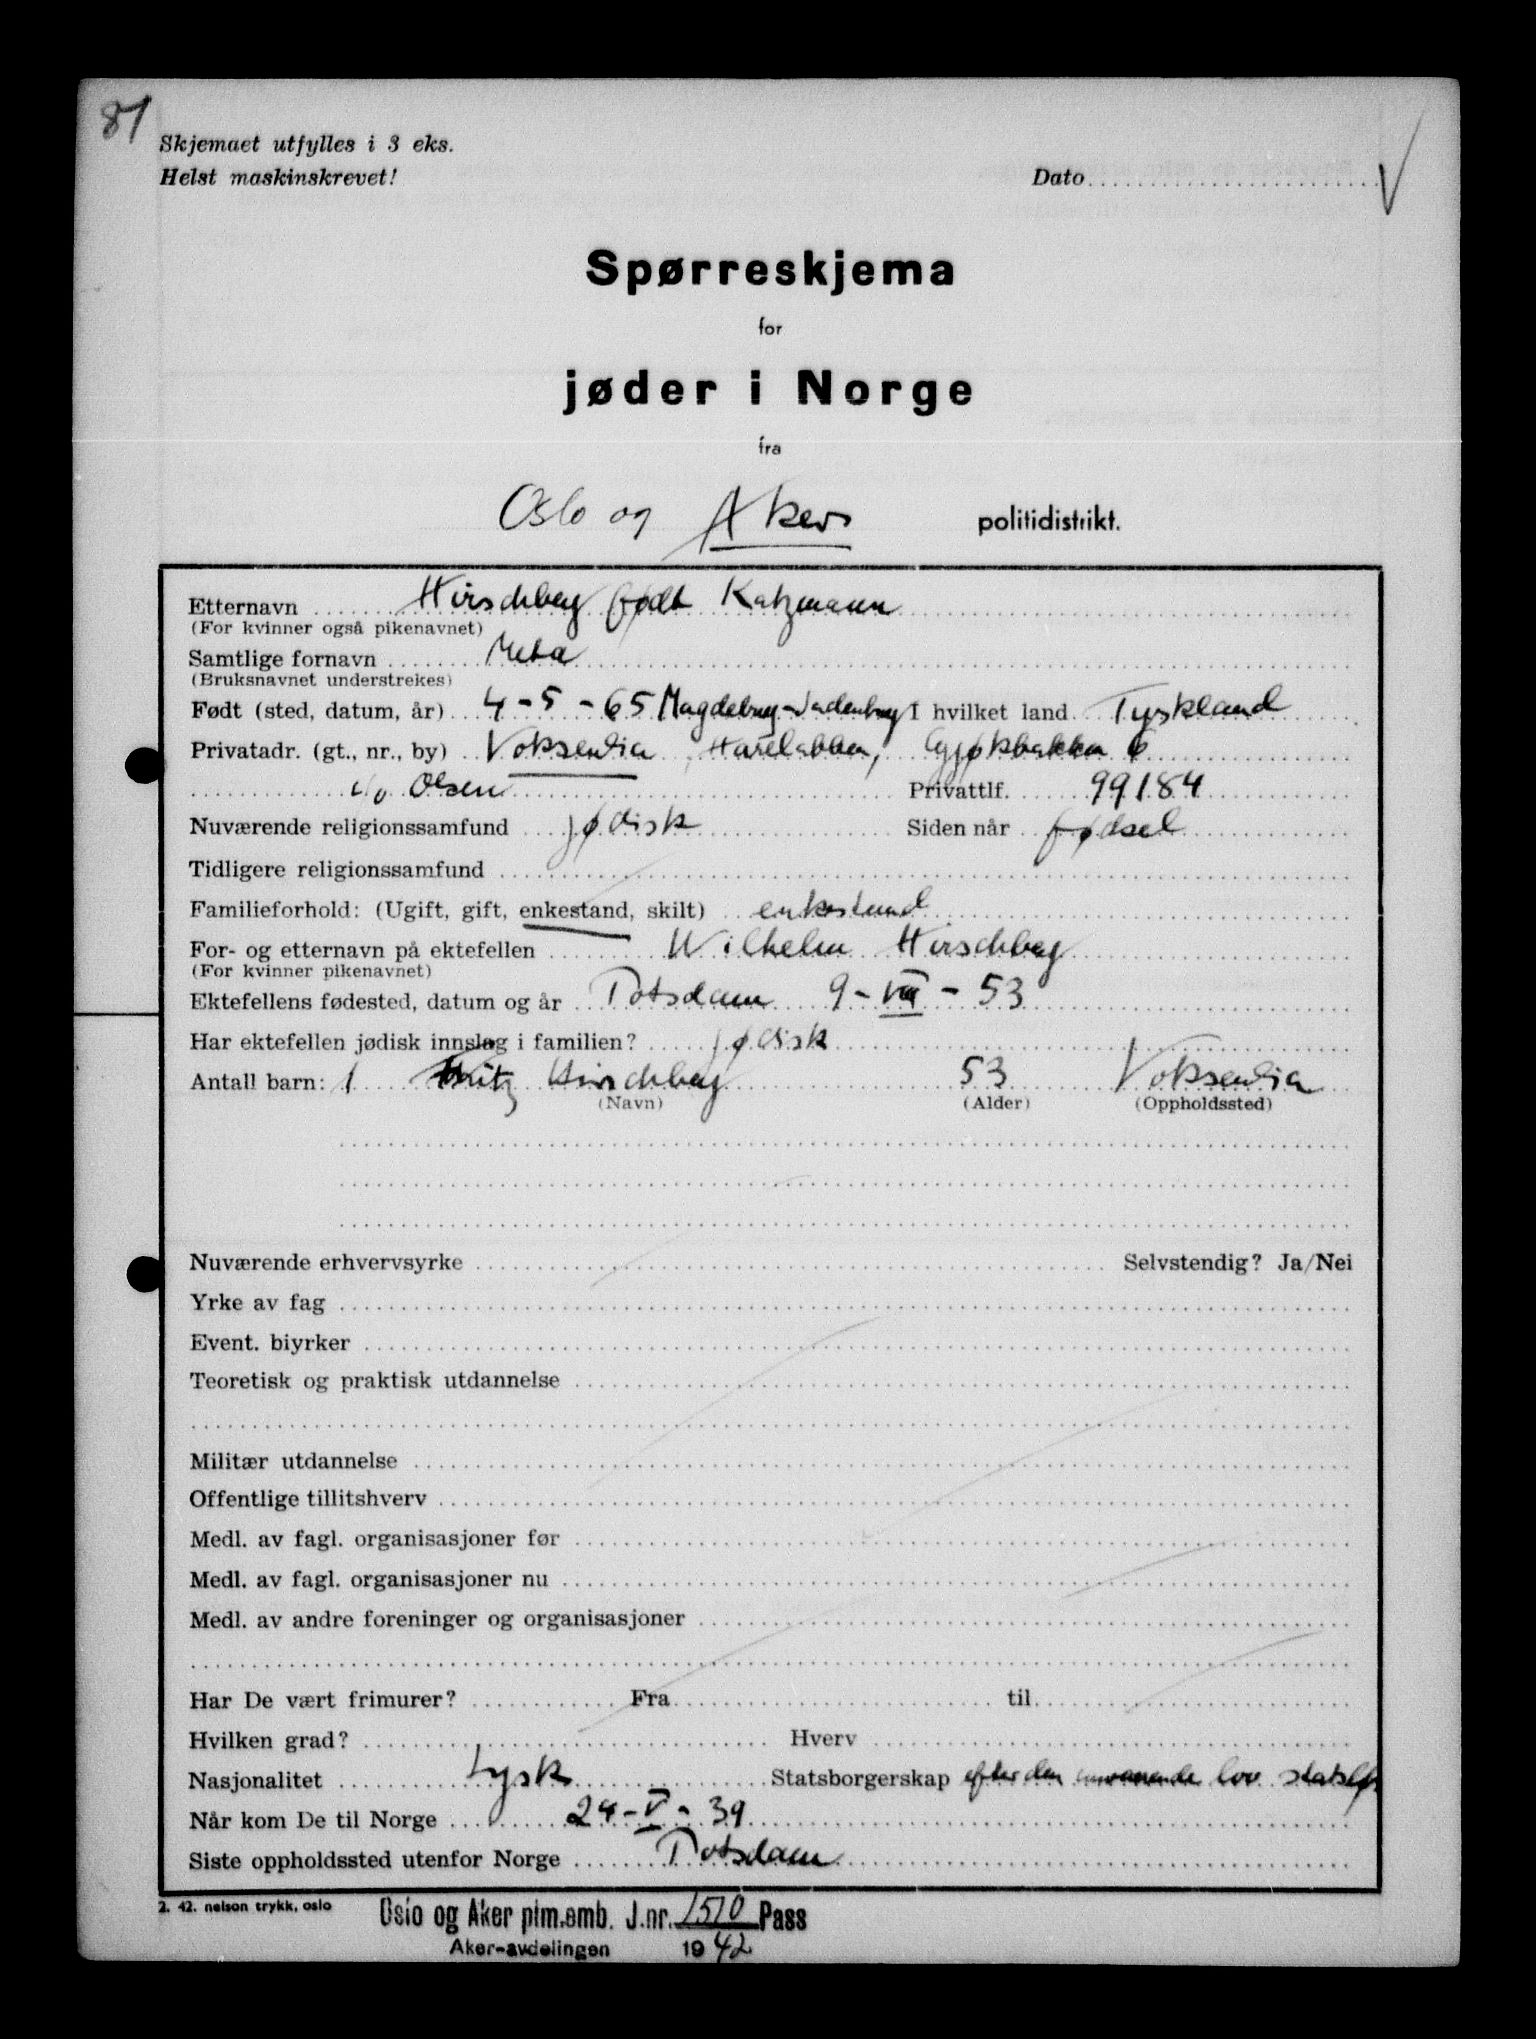 87
Skjemaet utfylles i 3 eks.
Helst maskinskrevet! Dato
Spørreskjema
for
jøder i Norge
fra
Oslo og Akers politidistrikt.
Etternavn Hirschberg født Katzmann
(For kvinner også pikenavnet)
Samtlige fornavn Meta
(Bruksnavnet understrekes)
Født (sted, datum, år) 4-5-65 Magdeburg- I hvilket land Tyskland
Privatadr. (gt., nr., by) Voksenlia, Harelabben, Gjøkbakken 6
c/o Olsen Privattlf. 99184
Nuværende religionssamfund jødisk Siden når fødsel
Tidligere religionssamfund
Familieforhold: (Ugift, gift, enkestand, skilt) enkestand
For- og etternavn på ektefellen Wilhelm Hirschberg
(For kvinner pikenavnet)
Ektefellens fødested, datum og år Potsdam 9-VII-53
Har ektefellen jødisk innslag i familien? jødisk
Antall barn: 1 Fritz Hirschberg 53 Voksenlia
(Navn) (Alder) (Oppholdssted)
Nuværende erhvervsyrke Selvstendig? Ja/Nei
Yrke av fag
Event. biyrker
Teoretisk og praktisk utdannelse
Militær utdannelse
Offentlige tillitshverv
Medl. av fagl. organisasjoner før
Medl. av fagl. organisasjoner nu
Medl. av andre foreninger og organisasjoner
Har De vært frimurer? Fra til
Hvilken grad? Hverv
Nasjonalitet tysk Statsborgerskap efter den lov statsløs
Når kom De til Norge 24-V-39
Siste oppholdssted utenfor Norge Potsdam
2. 42. nelson trykk, oslo
Oslo og Aker plm.emb. J.nr. 1510 Pass
Aker-avdelingen 1942